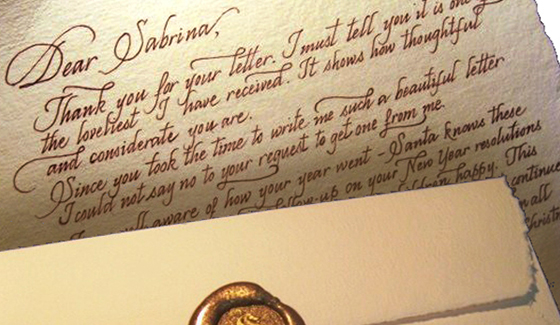 Dear Sabrina,
Thank you for your letter. I must tell you it is one
the loveliest I have received. It shows how thoughtful
and considerate you are.
Since you took the time to write me such a beautiful letter
I could not say no to your request to get one from me.
well aware of how your year went - Santa knows these
follow-up on your New Year resolutions
happy. This
continue
all